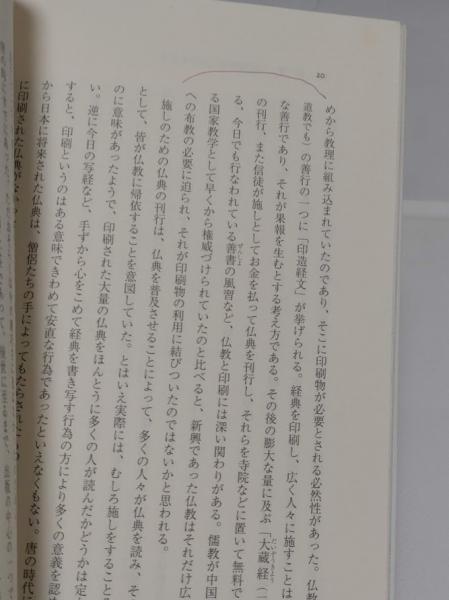 20
めから教理に組み込まれていたのであり、そこに印刷物が必要とされる必然性があった。仏教
道教でも）の善行の一つに「印造経文」が挙げられる。経典を印刷し、広く人々に施すことは
な善行であり、それが果報を生むとする考え方である。その後の膨大な量に及ぶ「大蔵経（一
の刊行、また信徒が施しとしてお金を払って仏典を刊行し、それらを寺院などに置いて無料で
る、今日でも行なわれている善書の風習など、仏教と印刷には深い関わりがある。儒教が中国
る国家教学として早くから権威づけられていたのと比べると、新興であった仏教はそれだけ広
への布教の必要に迫られ、それが印刷物の利用に結びついたのではないかと思われる。
施しのための仏典の刊行は、仏典を普及させることによって、多くの人々が仏典を読み、そ
として、皆が仏教に帰依することを意図していた。とはいえ実際には、むしろ施しをすること
のに意味があったようで、印刷された大量の仏典をほんとうに多くの人が読んだかどうかは定
い。逆に今日の写経など、手ずから心をこめて経典を書き写す行為の方により多くの意義を認
すると、印刷というのはある意味できわめて安直な行為であったといえなくもない。唐の時代
から日本に将来された仏典は、僧侶たちの手によってもたらされた
に印刷された仏典が